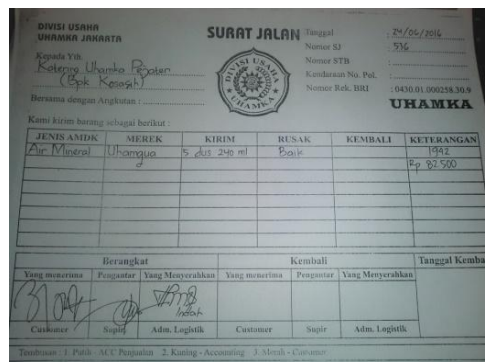 DIVISI USAHA
UHAMKA JAKARTA
SURAT JALAN
Tanggal : 24/06/2016
Nomor SJ : 536
Nomor STB :
Kendaraan No. Pol. :
Nomor Rek. BRI : 0430.01.000258.30.9
UHAMKA
Kepada Yth.
Katering Uhamka
(Bpk Kosasih)
Bersama dengan Angkutan :
DIVISI USAHA
UHAMKA
Kami kirim barang sebagai berikut :
JENIS AMDK MEREK KIRIM RUSAK KEMBALI KETERANGAN
Air Mineral Uhamqua 5 dus 240 ml Baik 1942
Rp 82.500
Berangkat Kembali Tanggal Kemba
Yang menerima Pengantar Yang Menyerahkan Yang menerima Pengantar Yang Menyerahkan
Indah
Customer Supir Adm. Logistik Customer Supir Adm. Logistik
Tembusan : 1. Putih - ACC Penjualan 2. Kuning - Accounting 3. Merah - Customer